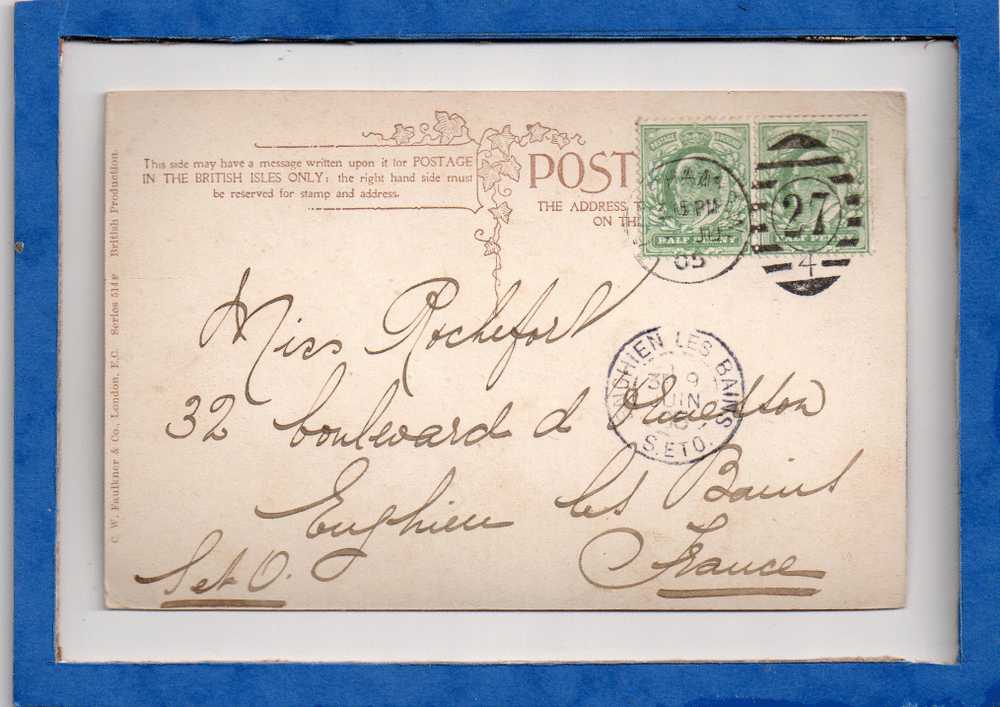 This side may have a message written upon it for POSTAGE
IN THE BRITISH ISLES ONLY: the right hand side must
be reserved for stamp and address.
POST
THE ADDRESS
ON THE
HALF PENNY
HALF PE
5 PM
JU
05
27
4
Miss Rochefort
32 boulevard d
Enghien les Bains
France
Set O.
ENGHIEN LES BAINS
9
JUIN
S. ET O.
C. W. Faulkner & Co., London, E.C. Series 514F British Production.